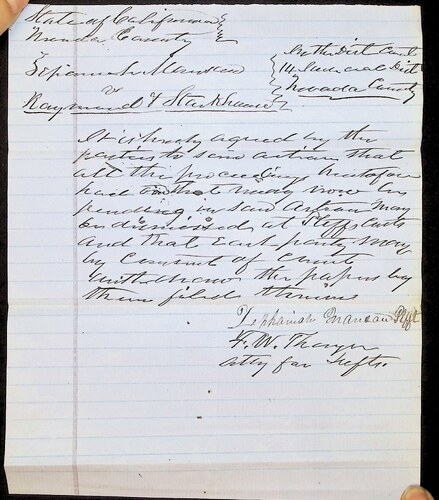 State of California
Nevada County
In the Dist Court
14 Judicial Dist
Nevada County
Zephaniah
v
Raymond &
It is hereby agreed by the
parties to said action that
all the proceedings heretofore
had and that may now be
pending in said Action may
be dismissed at Plffs Costs
and that Each party may
by Consent of Court
withdraw the papers by
them filed therein
Zephaniah Plft
F. W. Thayer
Atty for Defts.